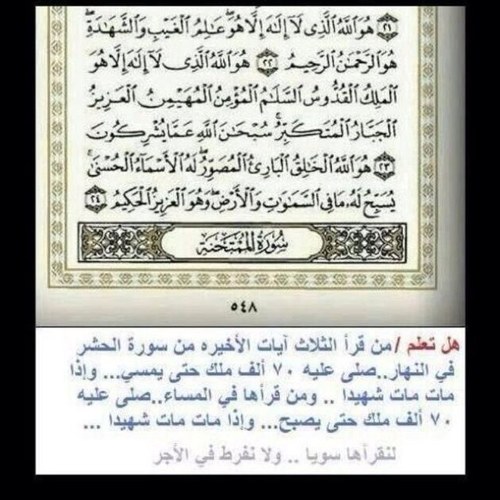 ﴿٢١﴾ هُوَ ٱللَّهُ ٱلَّذِى لَآ إِلَٰهَ إِلَّا هُوَ ۖ عَٰلِمُ ٱلْغَيْبِ وَٱلشَّهَٰدَةِ ۖ
هُوَ ٱلرَّحْمَٰنُ ٱلرَّحِيمُ ﴿٢٢﴾ هُوَ ٱللَّهُ ٱلَّذِى لَآ إِلَٰهَ إِلَّا هُوَ
ٱلْمَلِكُ ٱلْقُدُّوسُ ٱلسَّلَٰمُ ٱلْمُؤْمِنُ ٱلْمُهَيْمِنُ ٱلْعَزِيزُ
ٱلْجَبَّارُ ٱلْمُتَكَبِّرُ ۚ سُبْحَٰنَ ٱللَّهِ عَمَّا يُشْرِكُونَ
﴿٢٣﴾ هُوَ ٱللَّهُ ٱلْخَٰلِقُ ٱلْبَارِئُ ٱلْمُصَوِّرُ ۖ لَهُ ٱلْأَسْمَآءُ ٱلْحُسْنَىٰ ۚ
يُسَبِّحُ لَهُۥ مَا فِى ٱلسَّمَٰوَٰتِ وَٱلْأَرْضِ ۖ وَهُوَ ٱلْعَزِيزُ ٱلْحَكِيمُ ﴿٢٤﴾
سُورَةُ المُمْتَحنَة
٥٤٨
هل تعلم / من قرأ الثلاث آيات الأخيره من سورة الحشر
في النهار..صلى عليه ٧٠ ألف ملك حتى يمسي... وإذا
مات مات شهيدا .. ومن قرأها في المساء..صلى عليه
٧٠ ألف ملك حتى يصبح... وإذا مات مات شهيدا ...
لنقرأها سويا .. ولا نفرط في الأجر